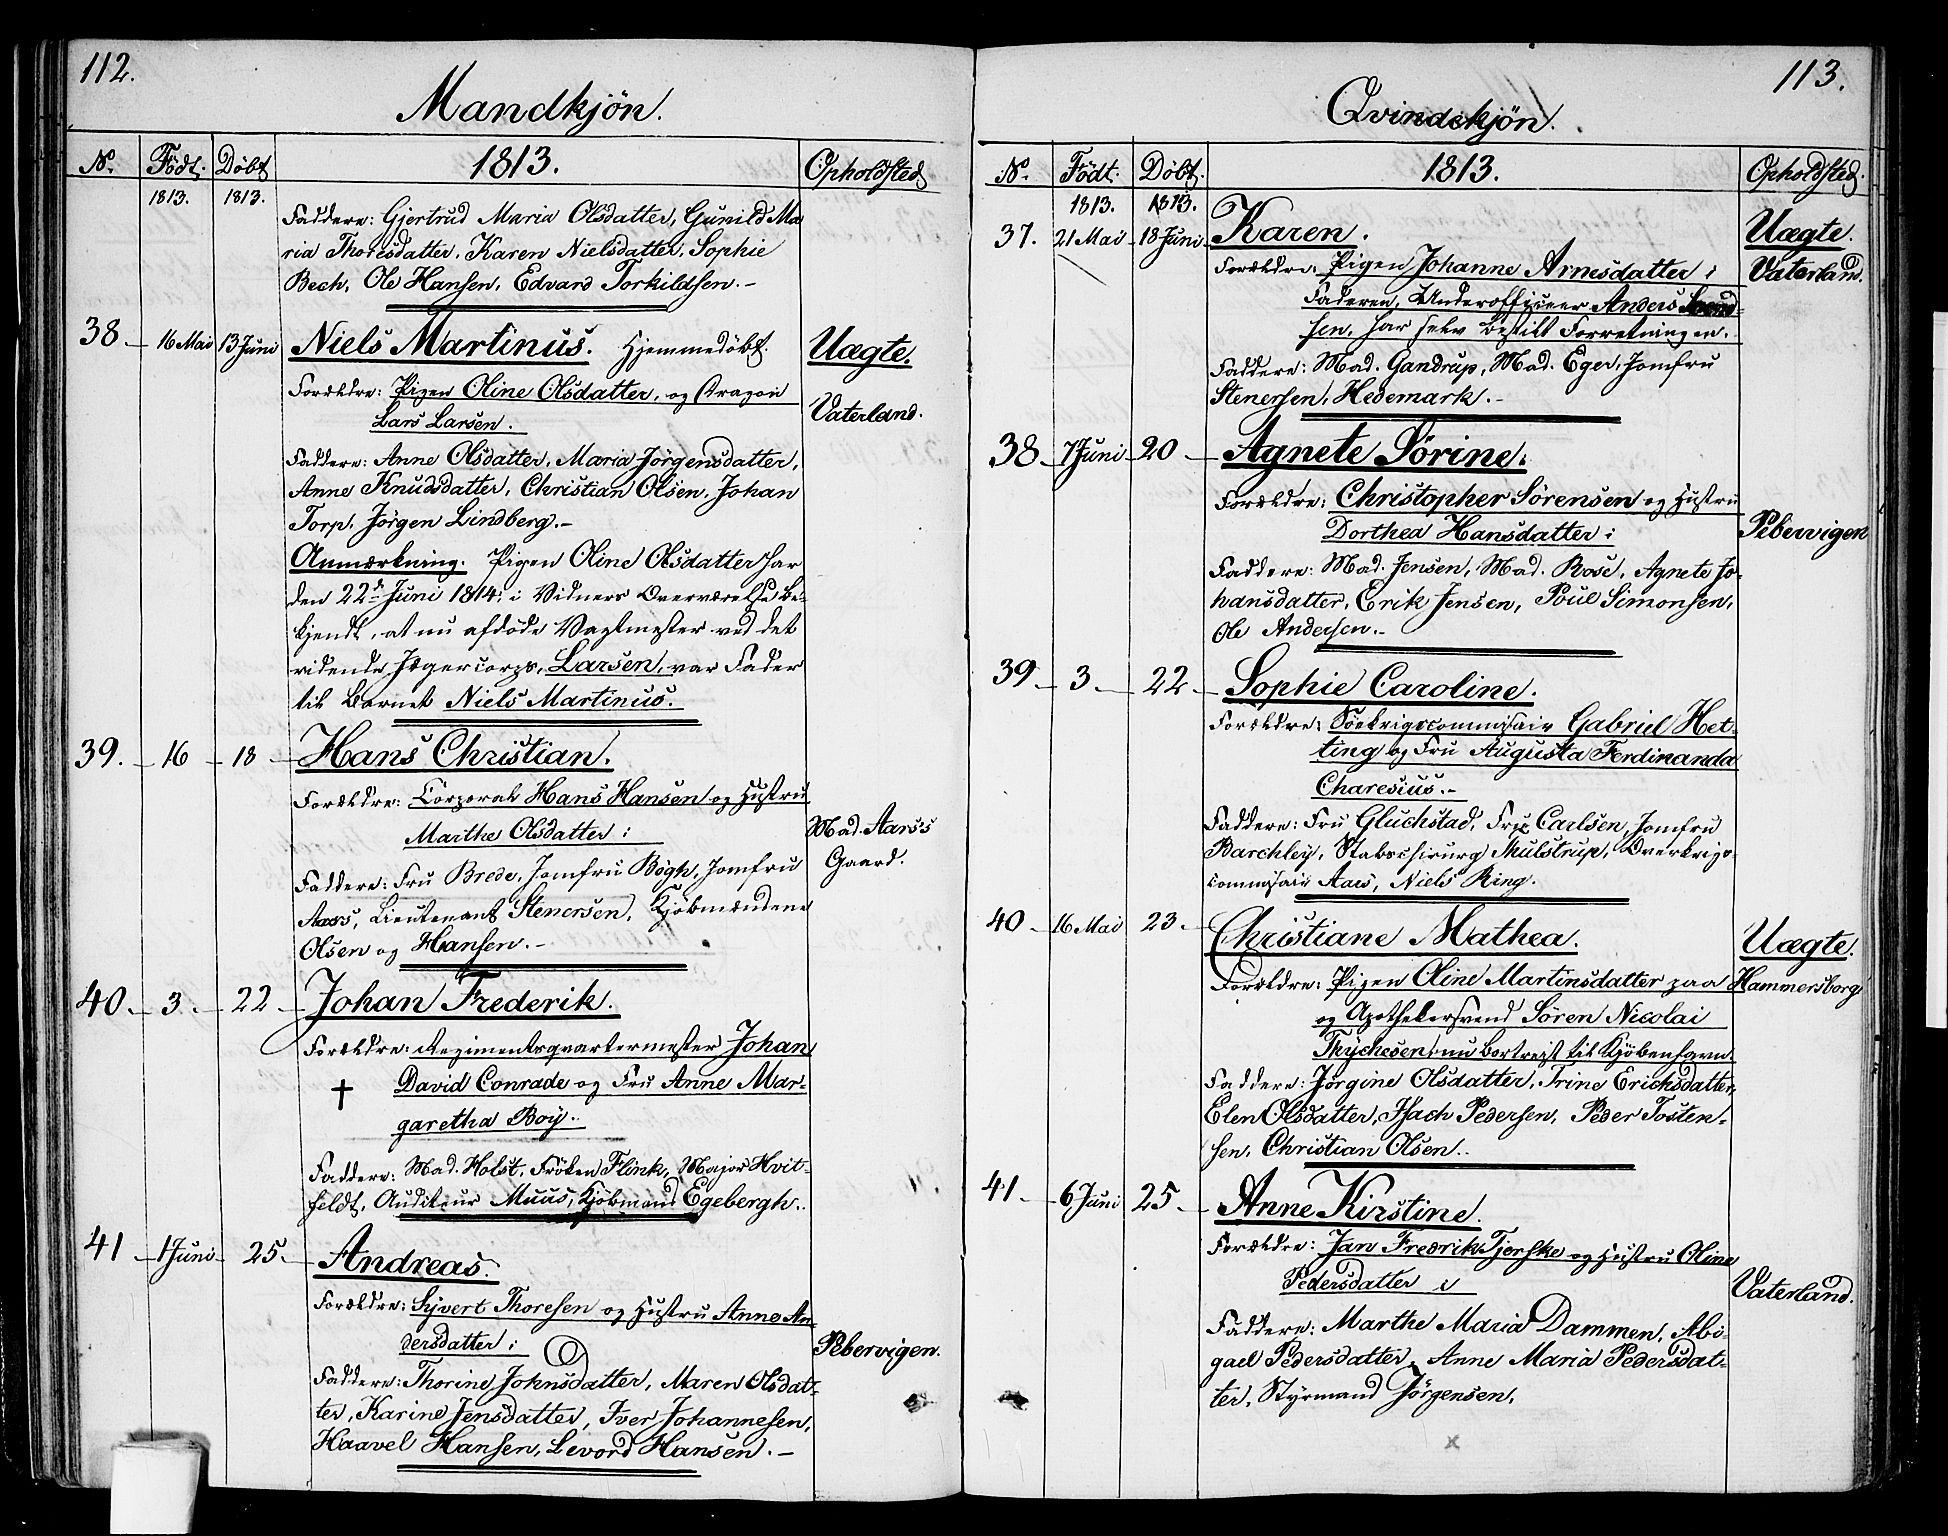 112.
Mandkjön.
No. Födt. Döbt 1813. Opholdsted
1813. 1813.
Faddere: Gjertrud Maria Olsdatter, Gunild Ma
ria Thoresdatter, Karen Nielsdatter, Sophie
Bech, Ole Hansen, Edvard Torkildsen.-
38 - 16 Mai 13 Juni Niels Martinus. Hjemmedöbt. Uægte.
Forældre: Pigen Oline Olsdatter, og Dragon
Lars Larsen. Vaterland.
Faddere: Anne Olsdatter, Maria Jörgensdatter,
Anne Knudsdatter, Christian Olsen, Johan
Torp, Jörgen Lindberg.-
Anmærkning. Pigen Oline Olsdatter har
den 22de Juni 1814, i Vidners Overværelse be-
kjendt, at nu afdöde Vagtmester ved det
ridende Jægercorps, Larsen, var Fader
til Barnet Niels Martinus.
39. - 16 - 18 - Hans Christian.
Forældre: Corporal Hans Hansen og Hustru
Marthe Olsdatter i Mad. Aars's
Gaard.
Faddere: Fru Brede, Jomfru Bögh, Jomfru
Aars, Lieutenant Stenersen, Kjöbmændene
Olsen og Hansen.-
40 - 3. - 22 - Johan Frederik.
Forældre: Regimentsqvartermester Johan
† David Conrade og Fru Anne Mar-
garetha Boy..
Faddere: Mad. Holst, Fröken Flink, Major Hvit-
feldt, Auditeur Muus, Kjöbmand Egebergh..
41 - 1 Juni - 25. - Andreas.
Forældre: Syvert Thoresen og Hustru Anne An-
dersdatter i Pebervigen.
Faddere: Thorine Johnsdatter, Maren Olsdat-
ter, Karine Jensdatter, Iver Johannesen,
Haavel Hansen, Levord Hansen.-
113.
Qvindekjön.
No. Födt. Döbt. 1813. Opholdsted.
1813. 1813.
37. 21 Mai - 18 Juni - Karen. Uægte.
Forældre: Pigen Johanne Arnesdatter i Vaterland.
Faderen, Underofficeer Anders Svend-
sen, har selv bestilt Forretningen.
Faddere: Mad. Gandrup, Mad. Eger, Jomfru
Stenersen, Hedemark.-
38 - 7 Juni - 20 - Agnete Sörine.
Forældre: Christopher Sörensen og Hustru
Dorthea Hansdatter i Pebervigen
Faddere: Mad. Jensen, Mad. Rose, Agnete Jo-
hansdatter, Erik Jensen, Poul Simonsen,
Ole Andersen.-
39 - 3 - 22 - Sophie Caroline.
Forældre: Söekrigscommissair Gabriel Het-
ting og Fru Augusta Ferdinanda
Charesius.-
Faddere: Fru Gluchstad, Fru Carlsen, Jomfru
Barchley, Stabschirurg Mulstrup, Overkrigs-
commissair Aars, Niels Ring.
40 - 16 Mai 23 - Christiane Mathea. Uægte.
Forældre: Pigen Oline Martinsdatter paa Hammersborg
og Apothekersvend Sören Nicolai
Thychesen, nu bortreist til Kjöbenhavn.
Faddere: Jörgine Olsdatter, Trine Erichsdatter,
Elen Olsdatter, Isach Pedersen, Peder Tosten-
sen, Christian Olsen..
41 - 6 Juni 25 - Anne Kirstine.
Forældre: Jan Fredrik Tjerske og Hustru Oline
Pedersdatter i Vaterland.
Faddere: Marthe Maria Dammen, Abi-
gael Pedersdatter, Anne Maria Pedersdat-
ter, Styrmand Jörgensen.
x